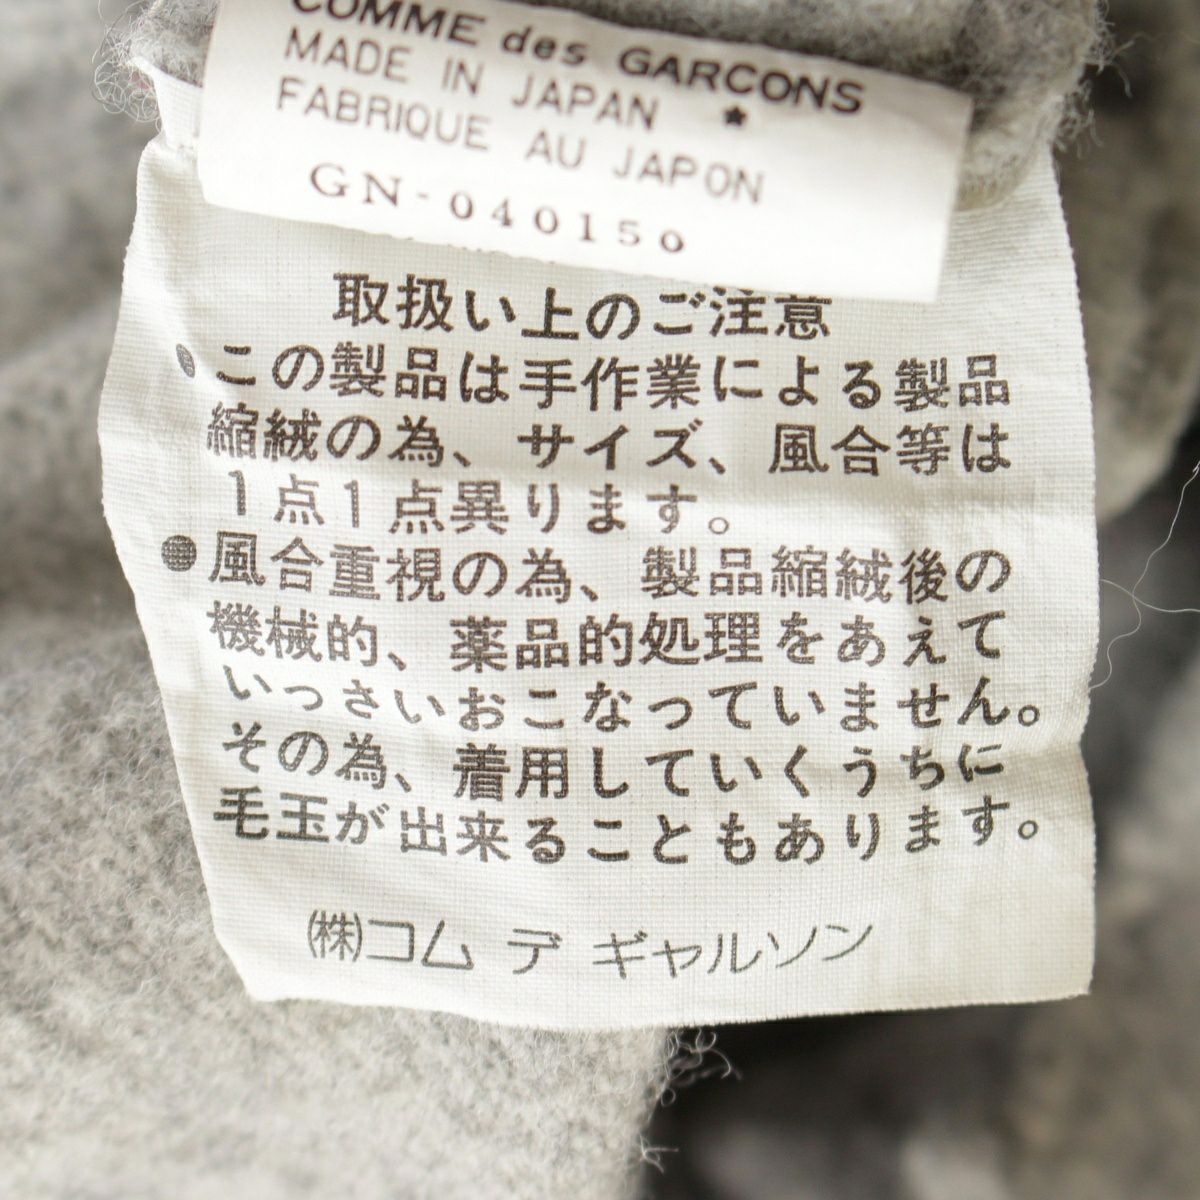 COMME des GARCONS
MADE IN JAPAN ★
FABRIQUE AU JAPON
GN-040150
取扱い上のご注意
●この製品は手作業による製品
縮絨の為、サイズ、風合等は
1点1点異ります。
●風合重視の為、製品縮絨後の
機械的、薬品的処理をあえて
いっさいおこなっていません。
その為、着用していくうちに
毛玉が出来ることもあります。
㈱コム デ ギャルソン